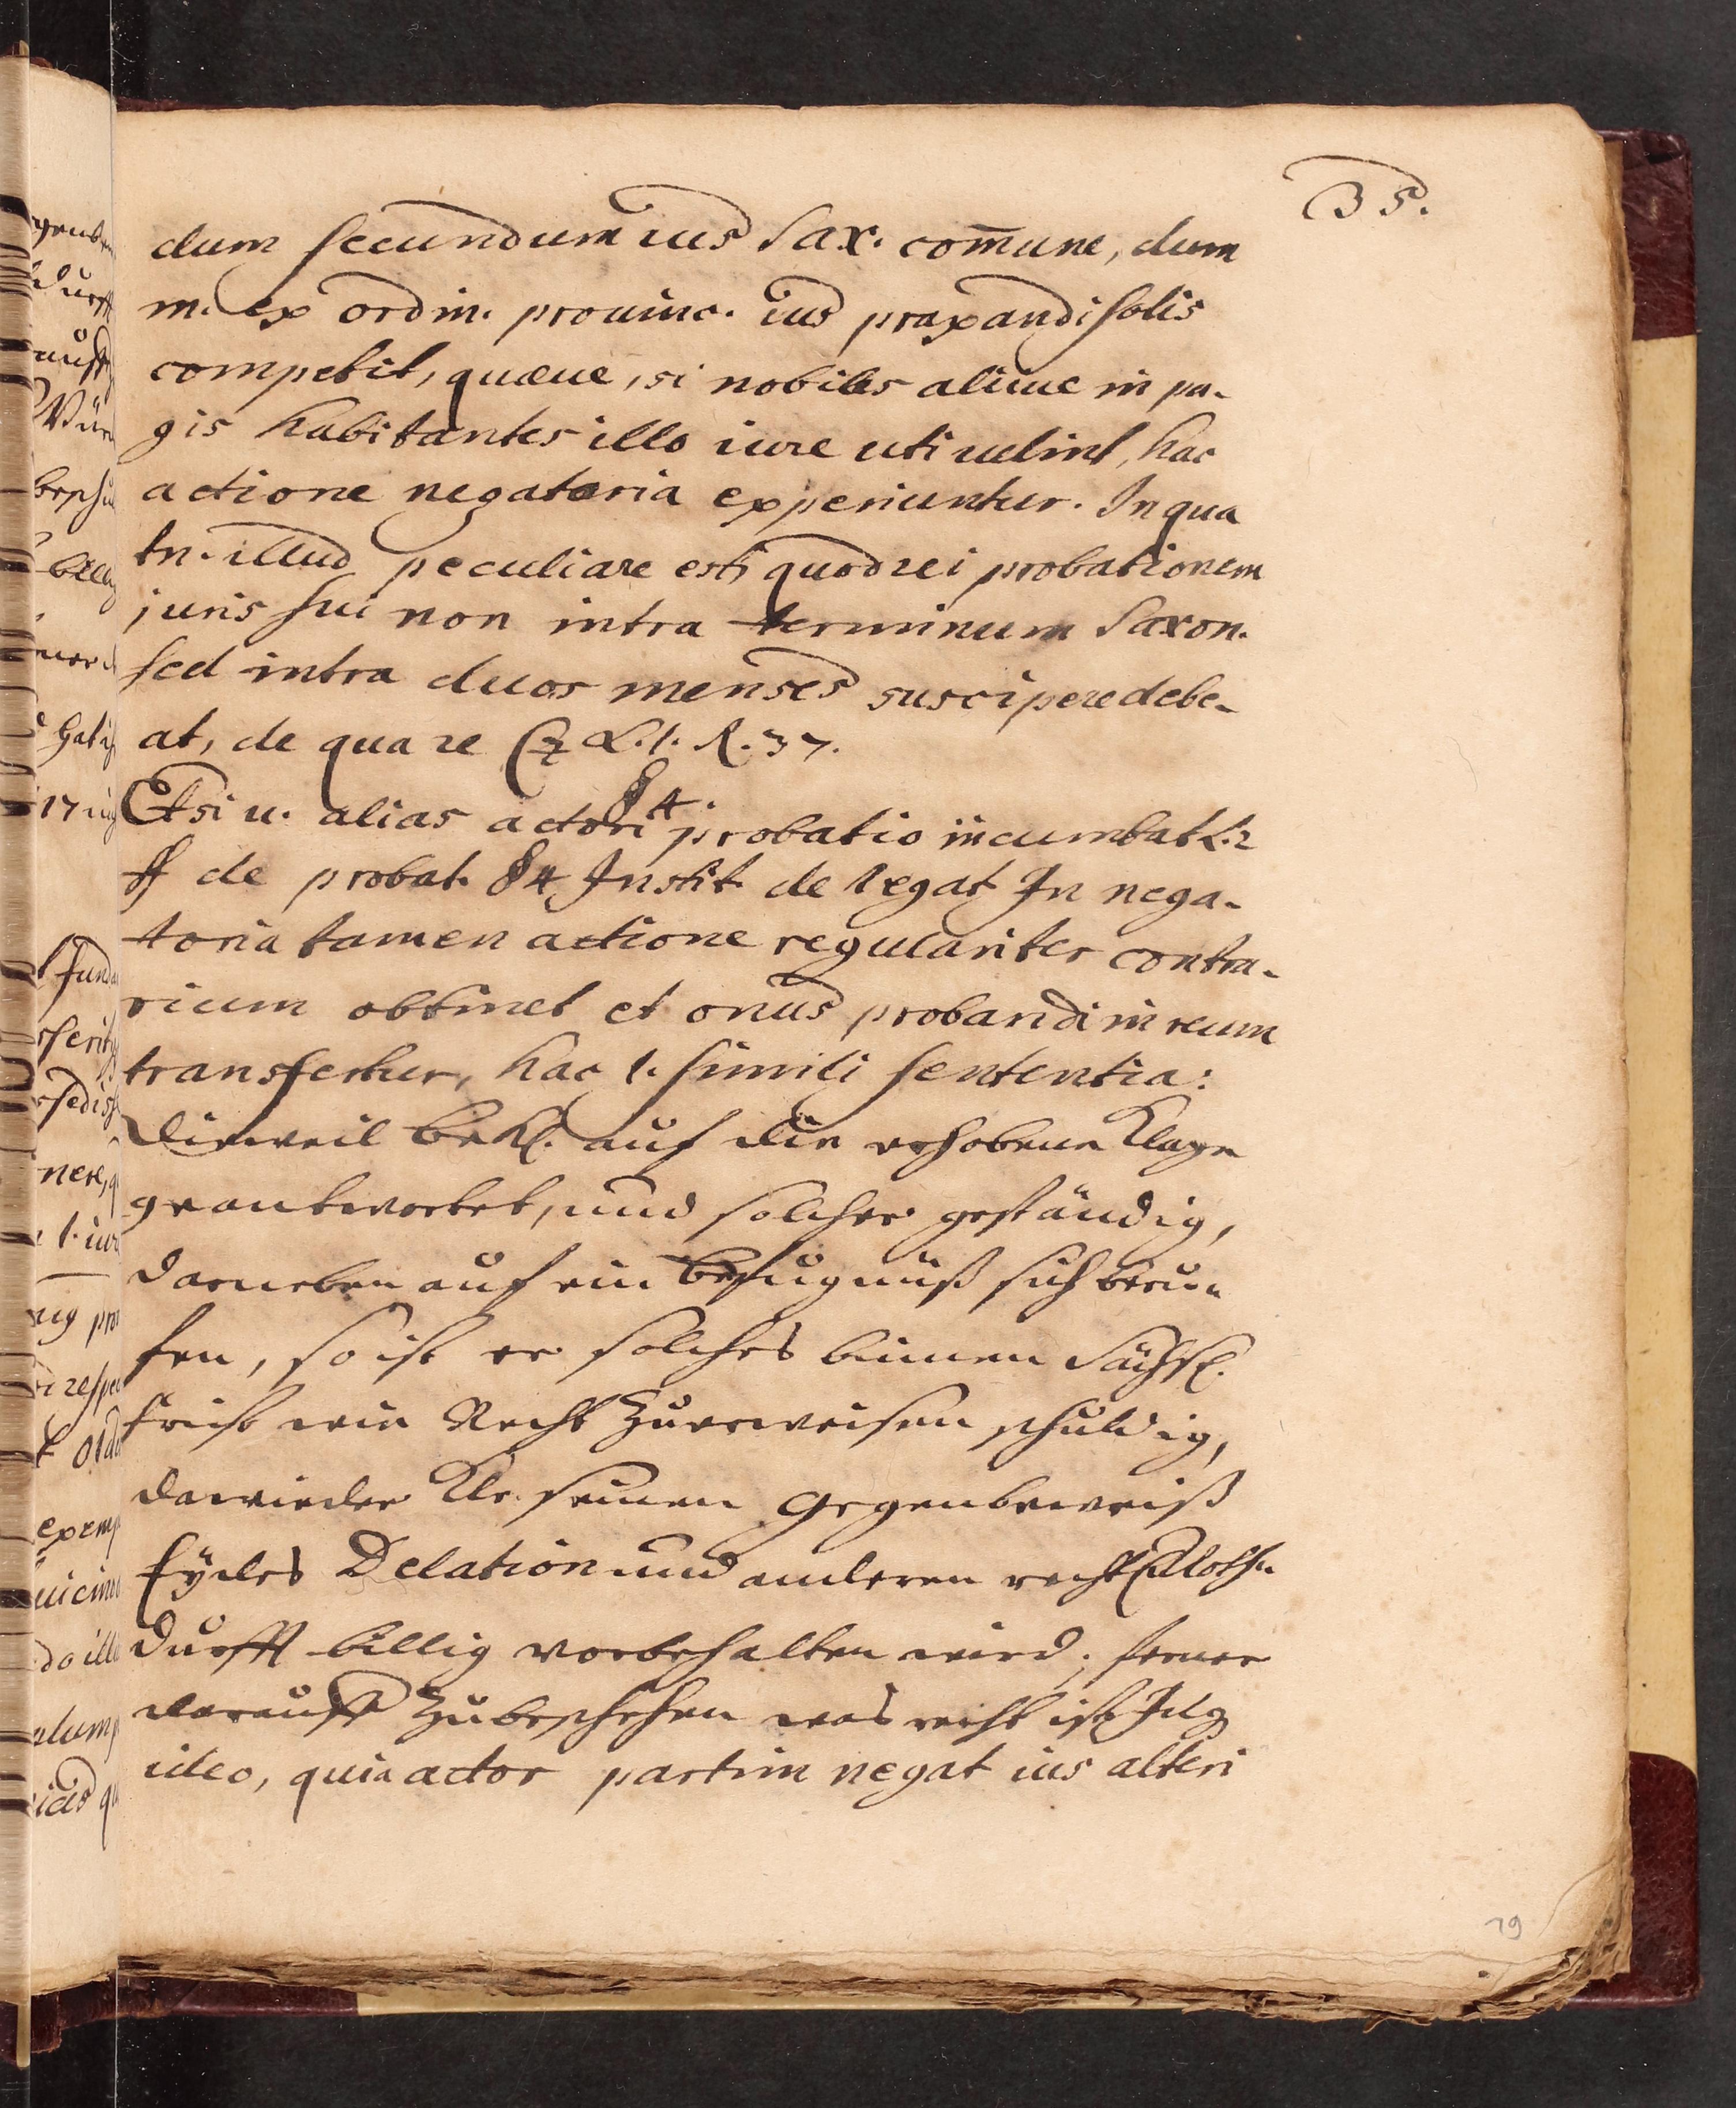 35.
dum secundum ius Sax. com̄une, dum
m. ex ordin. prouinc. ius praxandi solis
competit, quæue, si nobiles aliiue in pa-
gis habitantes illo iure uti uelint, hac
actione negatoria experiuntur. In qua
tn. illud peculiare est, quod rei probationem
juris sui non intra terminum Saxon.
sed intra duos menses suscipere debe-
at, de qua re Cz L. 1. R. 37.
§ 4.
Etsi u. alias actori probatio incumbat L. 2
ff de probat. § 4 Instit. de legat In nega-
toria tamen actione regulariter contra-
rium obtinet et onus probandi in reum
transfertur, hac l. simili sententia:
Dieweil Bekl. auf die erhobene Klage
geantwortet, und solcher geständig,
darneben auf ein Befugnüß sich beru-
fen, so ist er solches binnen Sächß.
Frist wie Recht zuerweisen schuldig,
dawieder Klr. seinen Gegenbeweiß
Eÿdes Delation und anderen rechtl. Noth-
durfft billig vorbehalten wird, ferner
darauff zubeschehen was recht ist, Idq
ideo, quia actor partim negat ius alteri
79